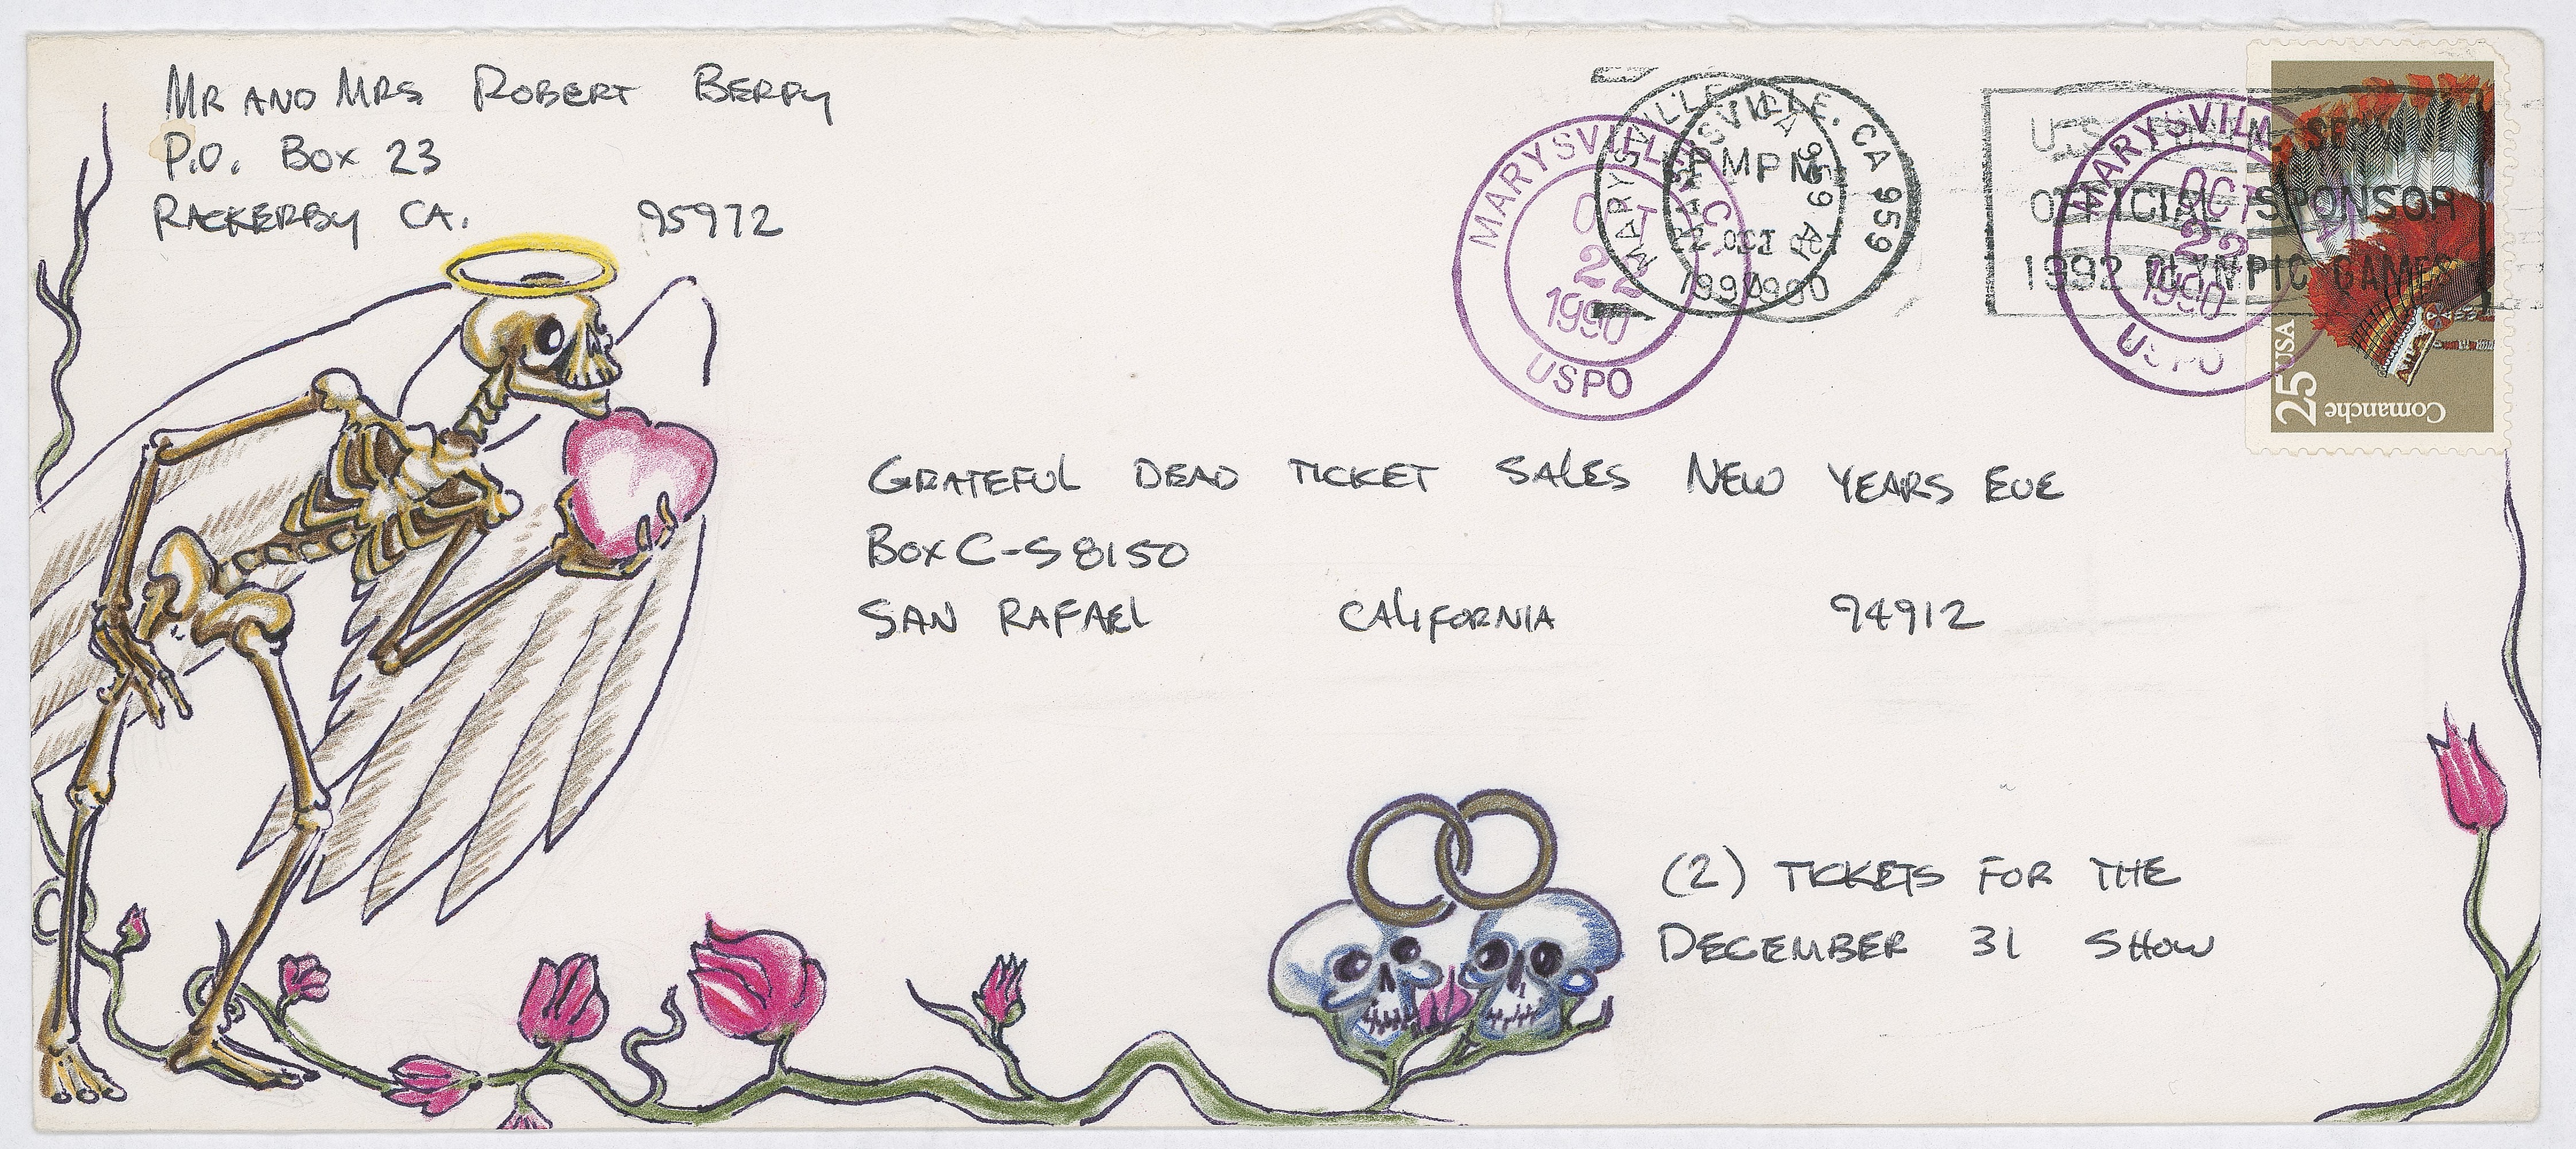 MR AND MRS ROBERT BERRY
P.O. BOX 23
RACKERBY CA. 95972
MARYSVILLE, CA 959
PM
22 OCT
1990
MARYSVILLE CA
OCT
22
1990
USPO
U.S.
OFFICIAL SPONSOR
1992 OLYMPIC GAMES
MARYSVILLE
OCT
22
1990
USPO
USA
25
Comanche
GRATEFUL DEAD TICKET SALES NEW YEARS EVE
BOX C-S 8150
SAN RAFAEL CALIFORNIA 94912
(2) TICKETS FOR THE
DECEMBER 31 SHOW